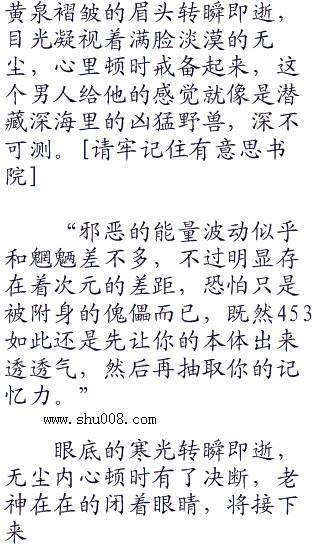 黄泉褶皱的眉头转瞬即逝，
目光凝视着满脸淡漠的无
尘，心里顿时戒备起来，这
个男人给他的感觉就像是潜
藏深海里的凶猛野兽，深不
可测。[请牢记住有意思书
院]
“邪恶的能量波动似乎
和魍魉差不多，不过明显存
在着次元的差距，恐怕只是
被附身的傀儡而已，既然453
如此还是先让你的本体出来
透透气，然后再抽取你的记
忆力。”
www.shu008.com
眼底的寒光转瞬即逝，
无尘内心顿时有了决断，老
神在在的闭着眼睛，将接下
来